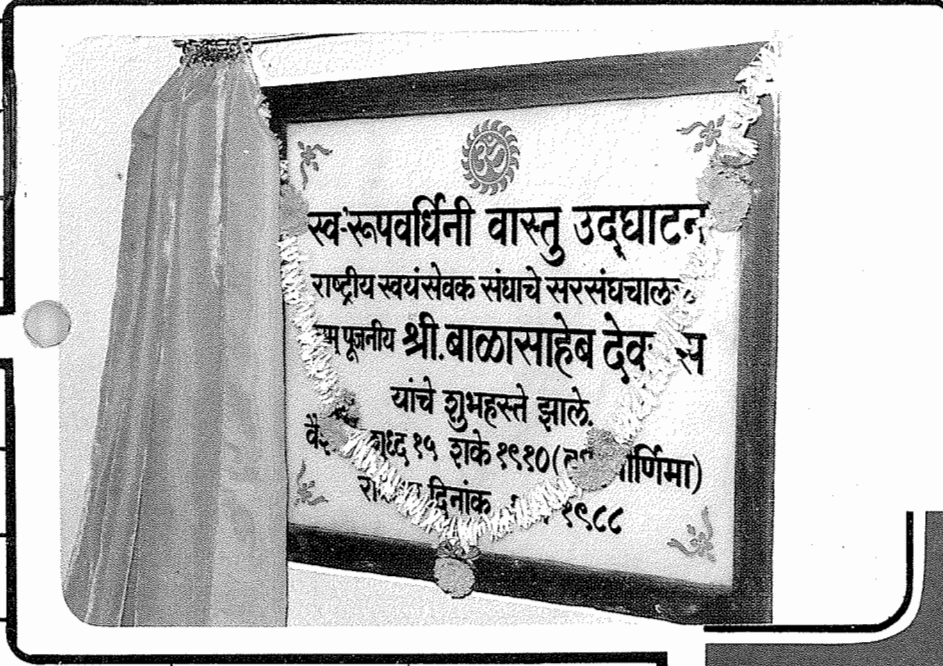 ॐ
स्व-रूपवर्धिनी वास्तु उद्घाटन
राष्ट्रीय स्वयंसेवक संघाचे सरसंघचालक
पूजनीय श्री. बाळासाहेब देवरस
यांचे शुभहस्ते झाले.
शुध्द १५ शके १९१०
दिनांक १९८८